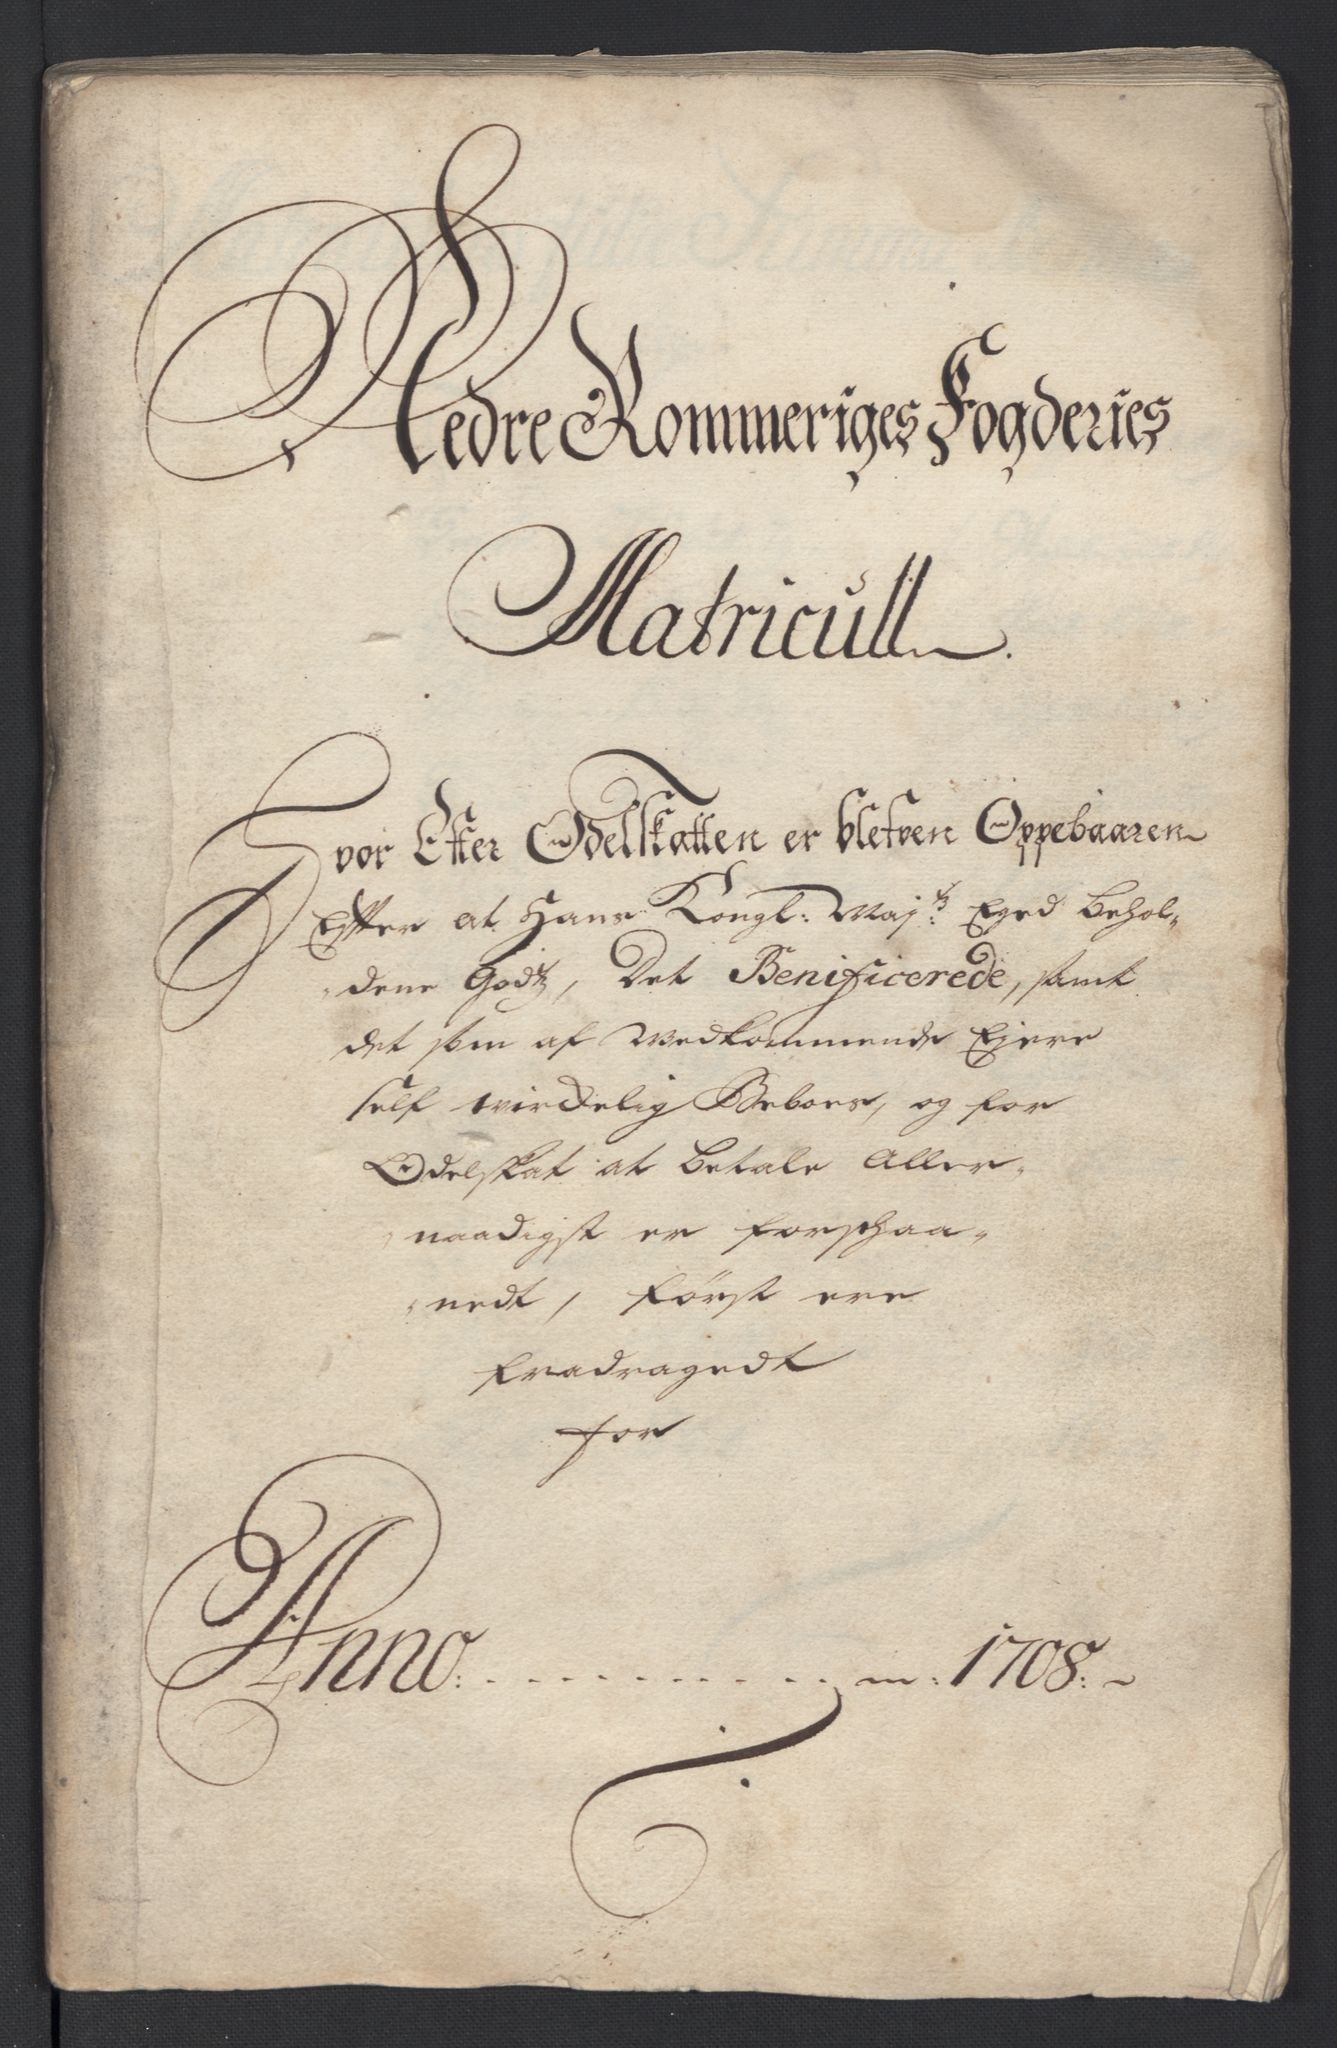 Nedre Rommeriges Fogderies
Matricull
Hvor Efter Odelskatten er blefven Oppebaaren
Efter at Hans Kongl: Maj:ts Eged Behol-
dene Godtz, Det Benificerede, samt
det som af Vedkommende Ejere
self virckelig Beboes, og for
Odelskat at betale Aller-
naadigst er forschaa-
nedt, først ere
fradragedt
for
Anno. 1708.